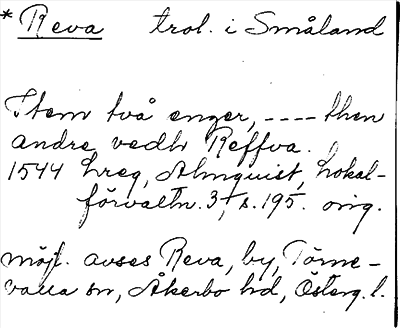 * Reva trol. i Småland
Item två enger, ---- then
andre vedh Reffva.
1544 hreg, Almquist, Lokal-
förvaltn. 3:1, s. 195. orig.
möjl. avses Reva, by, Törne-
valla sn, Åkerbo hd, Österg. l.